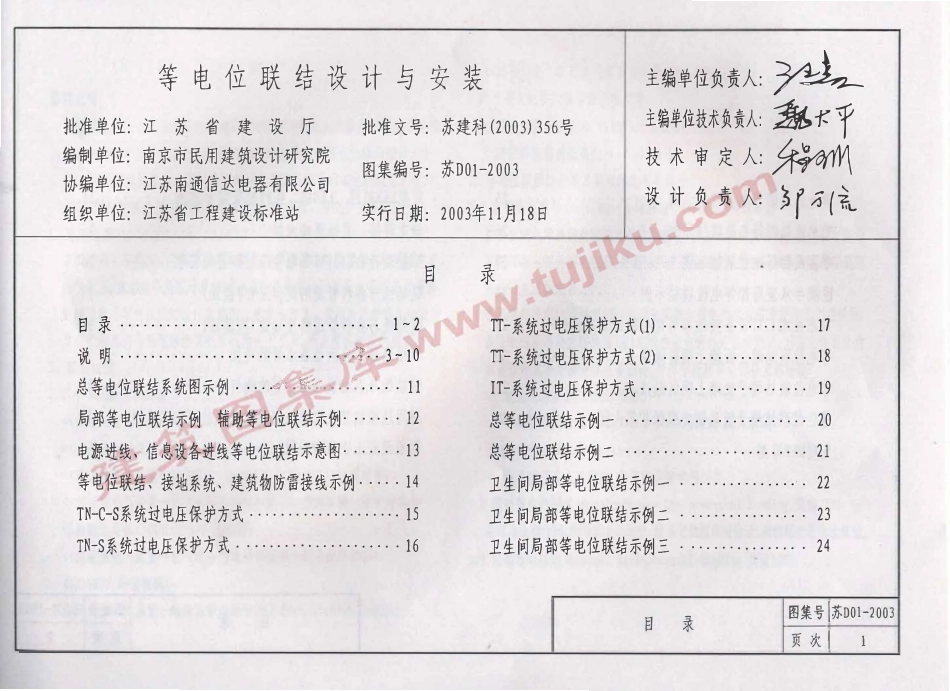 等电位联结设计与安装
批准单位: 江苏省建设厅 批准文号: 苏建科(2003)356号
编制单位: 南京市民用建筑设计研究院
协编单位: 江苏南通信达电器有限公司 图集编号: 苏D01-2003
组织单位: 江苏省工程建设标准站 实行日期: 2003年11月18日
主编单位负责人:
主编单位技术负责人: 魏大平
技术审定人:
设计负责人: 邹万流
目 录
目录 1~2
说明 3~10
总等电位联结系统图示例 11
局部等电位联结示例 辅助等电位联结示例 12
电源进线、信息设备进线等电位联结示意图 13
等电位联结、接地系统、建筑物防雷接线示例 14
TN-C-S系统过电压保护方式 15
TN-S系统过电压保护方式 16
TT-系统过电压保护方式(1) 17
TT-系统过电压保护方式(2) 18
IT-系统过电压保护方式 19
总等电位联结示例一 20
总等电位联结示例二 21
卫生间局部等电位联结示例一 22
卫生间局部等电位联结示例二 23
卫生间局部等电位联结示例三 24
建筑图集库 www.tujiku.com
目 录
图集号 苏D01-2003
页次 1